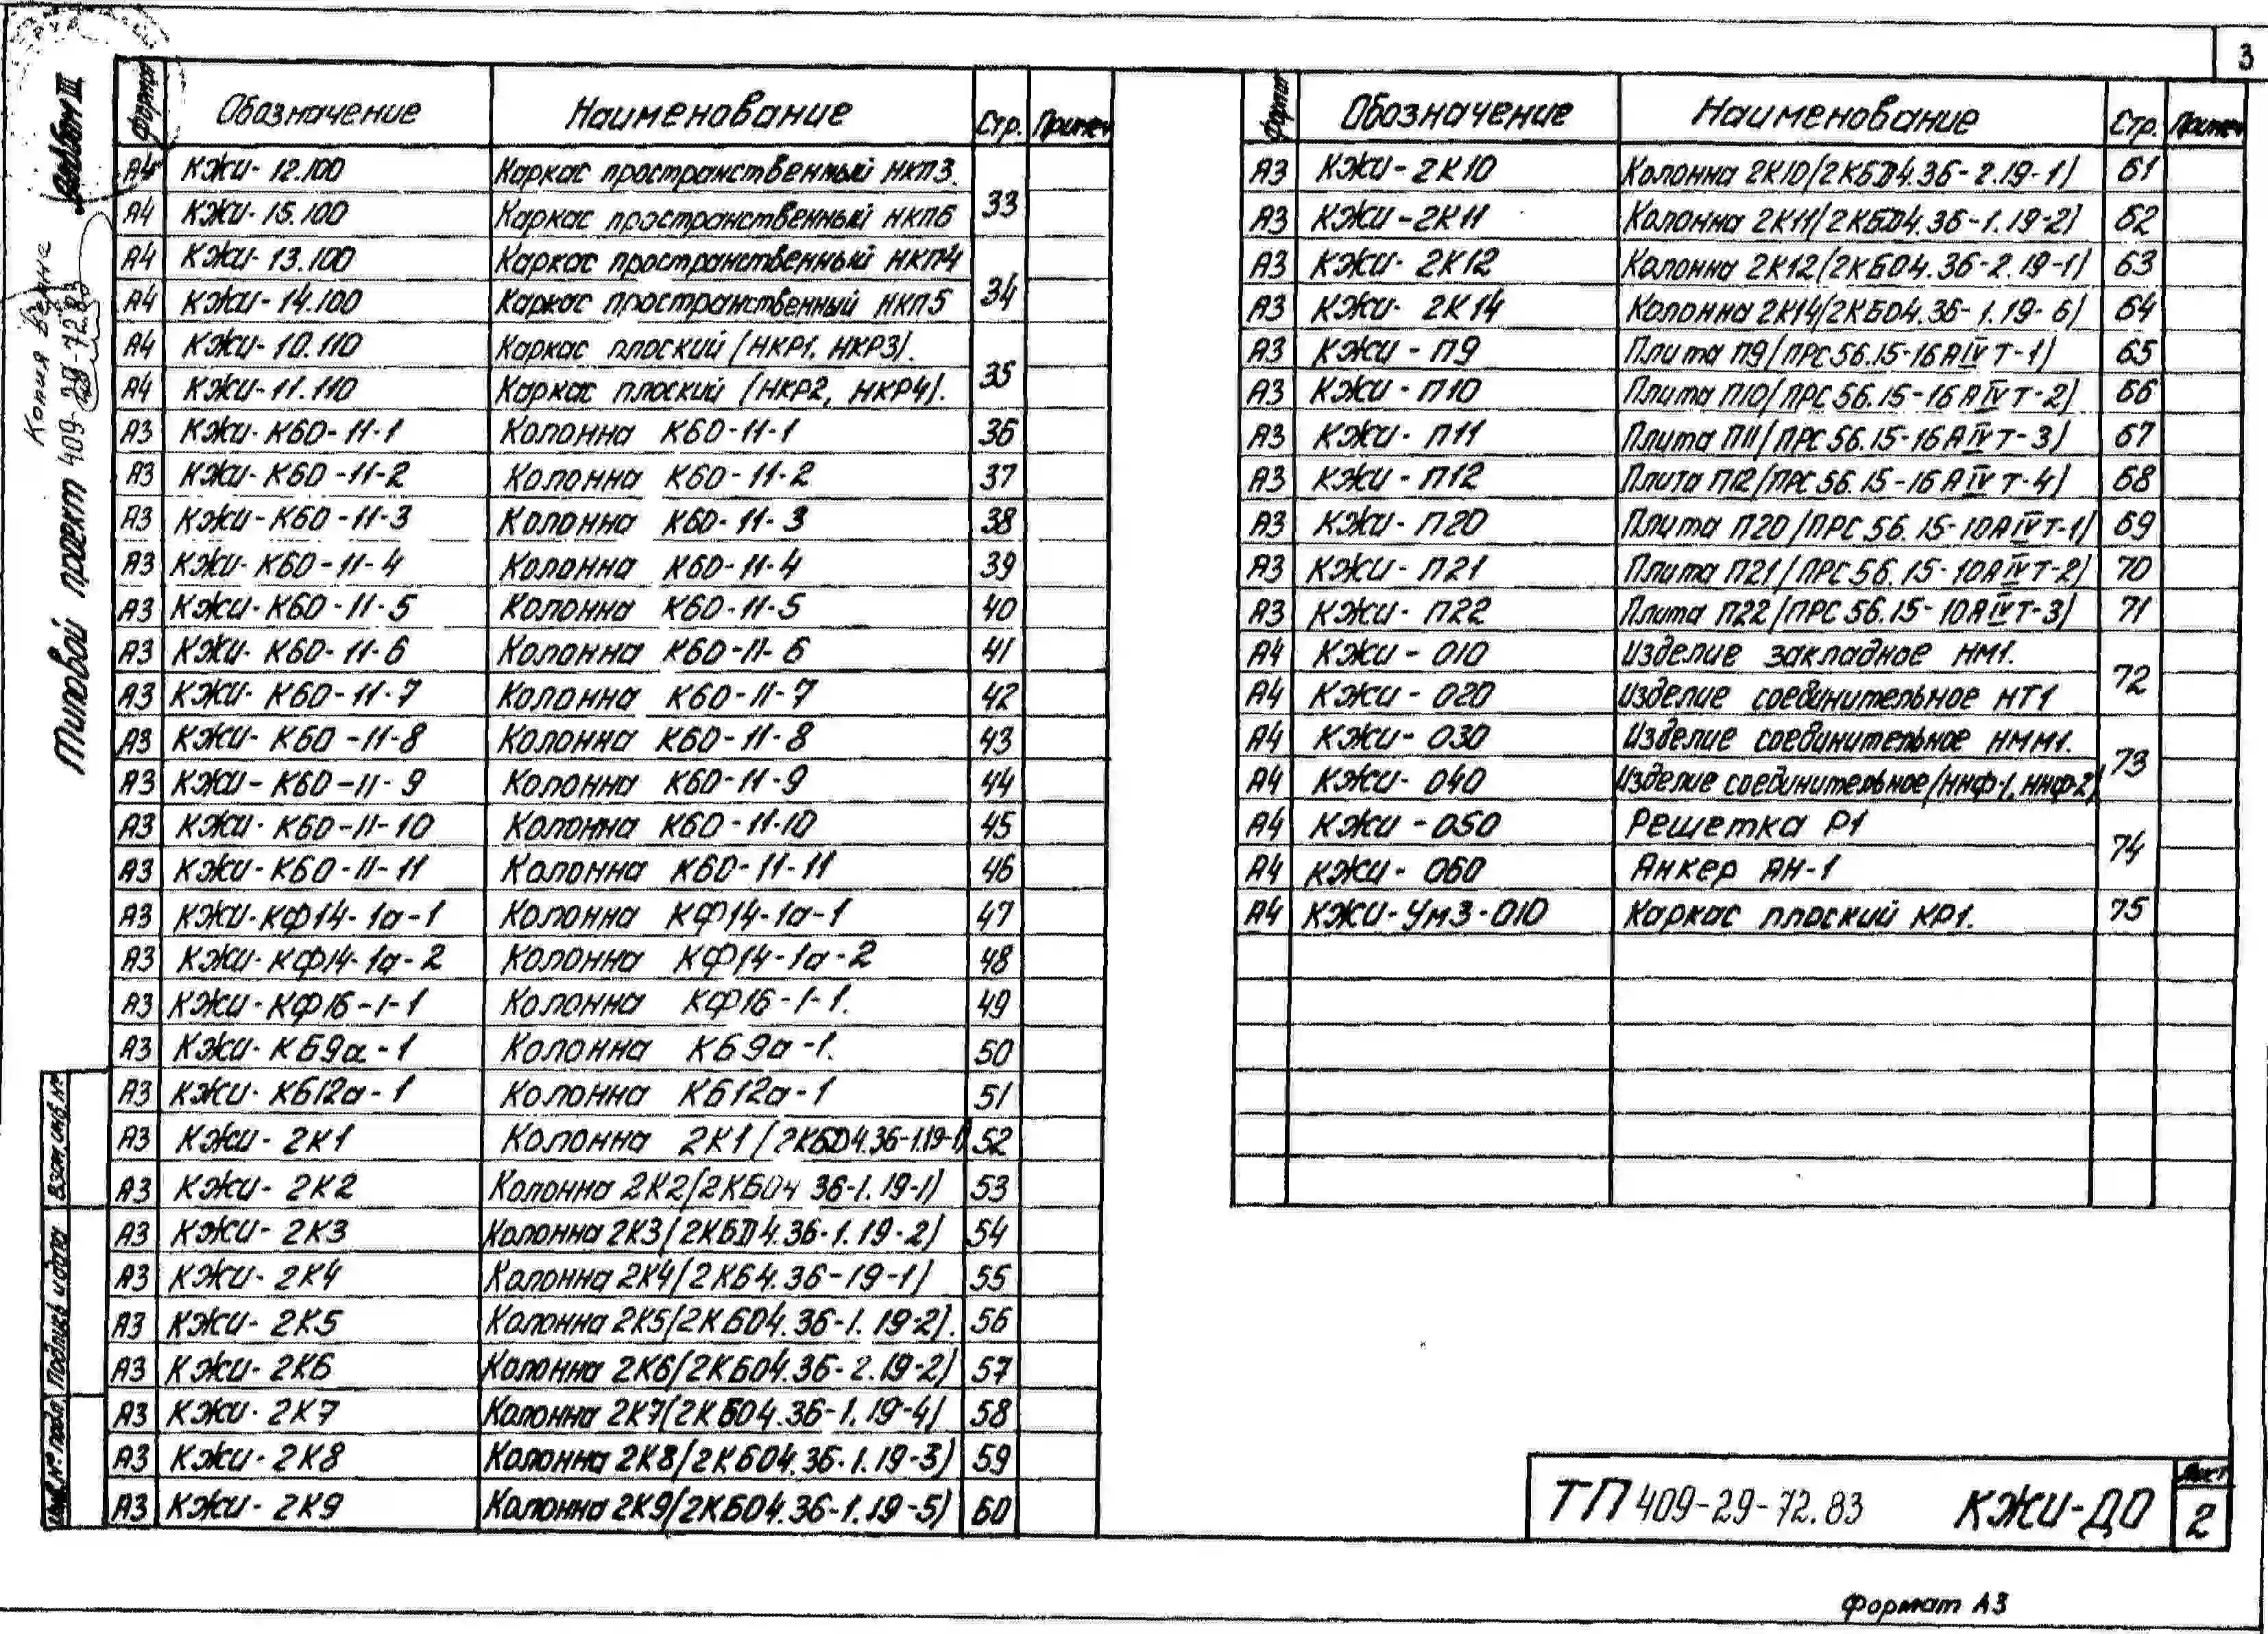 3
Альбом III
Копия верна
Типовой проект 409-29-72.83
Формат Обозначение Наименование Стр. Примеч
А4 КЖИ-12.100 Каркас пространственный НКП3. 33
А4 КЖИ-15.100 Каркас пространственный НКП6
А4 КЖИ-13.100 Каркас пространственный НКП4 34
А4 КЖИ-14.100 Каркас пространственный НКП5
А4 КЖИ-10.110 Каркас плоский (НКР1, НКР3). 35
А4 КЖИ-11.110 Каркас плоский (НКР2, НКР4).
А3 КЖИ-К60-11-1 Колонна К60-11-1 36
А3 КЖИ-К60-11-2 Колонна К60-11-2 37
А3 КЖИ-К60-11-3 Колонна К60-11-3 38
А3 КЖИ-К60-11-4 Колонна К60-11-4 39
А3 КЖИ-К60-11-5 Колонна К60-11-5 40
А3 КЖИ-К60-11-6 Колонна К60-11-6 41
А3 КЖИ-К60-11-7 Колонна К60-11-7 42
А3 КЖИ-К60-11-8 Колонна К60-11-8 43
А3 КЖИ-К60-11-9 Колонна К60-11-9 44
А3 КЖИ-К60-11-10 Колонна К60-11-10 45
А3 КЖИ-К60-11-11 Колонна К60-11-11 46
А3 КЖИ-КФ14-1а-1 Колонна КФ14-1а-1 47
А3 КЖИ-КФ14-1а-2 Колонна КФ14-1а-2 48
А3 КЖИ-КФ16-1-1 Колонна КФ16-1-1. 49
А3 КЖИ-КБ9а-1 Колонна КБ9а-1. 50
А3 КЖИ-КБ12а-1 Колонна КБ12а-1 51
А3 КЖИ-2К1 Колонна 2К1 (2КБД4.36-1.19-1) 52
А3 КЖИ-2К2 Колонна 2К2(2КБО4 36-1.19-1) 53
А3 КЖИ-2К3 Колонна 2К3(2КБД4.36-1.19-2) 54
А3 КЖИ-2К4 Колонна 2К4(2КБ4.36-19-1) 55
А3 КЖИ-2К5 Колонна 2К5(2КБО4.36-1.19-2). 56
А3 КЖИ-2К6 Колонна 2К6(2КБО4.36-2.19-2) 57
А3 КЖИ-2К7 Колонна 2К7(2КБО4.36-1.19-4) 58
А3 КЖИ-2К8 Колонна 2К8(2КБО4.36-1.19-3) 59
А3 КЖИ-2К9 Колонна 2К9(2КБО4.36-1.19-5) 60
Формат Обозначение Наименование Стр. Примеч
А3 КЖИ-2К10 Колонна 2К10(2КБД4.36-2.19-1) 61
А3 КЖИ-2К11 Колонна 2К11(2КБД4.36-1.19-2) 62
А3 КЖИ-2К12 Колонна 2К12(2КБО4.36-2.19-1) 63
А3 КЖИ-2К14 Колонна 2К14(2КБО4.36-1.19-6) 64
А3 КЖИ-П9 Плита П9(ПРС56.15-16АIVТ-1) 65
А3 КЖИ-П10 Плита П10(ПРС56.15-16АIVТ-2) 66
А3 КЖИ-П11 Плита П11(ПРС56.15-16АIVТ-3) 67
А3 КЖИ-П12 Плита П12(ПРС56.15-16АIVТ-4) 68
А3 КЖИ-П20 Плита П20(ПРС56.15-10АIVТ-1) 69
А3 КЖИ-П21 Плита П21(ПРС56.15-10АIVТ-2) 70
А3 КЖИ-П22 Плита П22(ПРС56.15-10АIVТ-3) 71
А4 КЖИ-010 Изделие закладное НМ1. 72
А4 КЖИ-020 Изделие соединительное НТ1
А4 КЖИ-030 Изделие соединительное НММ1. 73
А4 КЖИ-040 Изделие соединительное(ННФ-1, ННФ-2)
А4 КЖИ-050 Решетка Р1 74
А4 КЖИ-060 Анкер АН-1
А4 КЖИ-УМ3-010 Каркас плоский КР1. 75
Взам.инв.№
Подпись и дата
Инв.№ подл
ТП 409-29-72.83 КЖИ-ДО
Лист
2
Формат А3